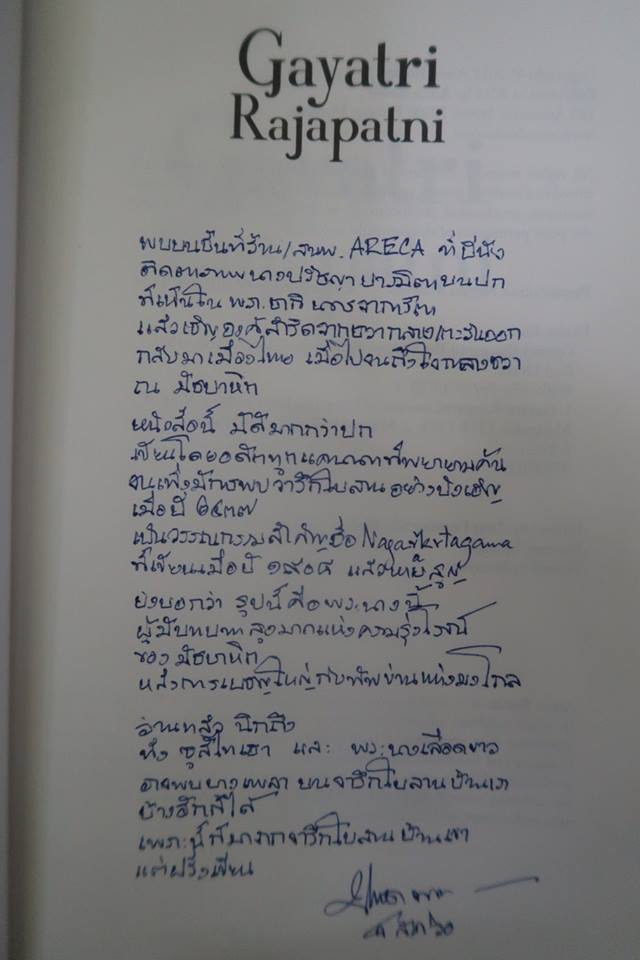 Gayatri
Rajapatni
พบบนชั้นที่ร้าน/สนพ. ARECA ที่ปีนัง
ติดตาภาพนางปรัชญาปารมิตาบนปก
ที่เห็นใน
แล้วเชิญองค์สำริดจากชวากลาง/ตะวันออก
กลับมาเมืองไทย เมื่อไปจนถึงใจกลางชวา
ณ มัชปาหิต
หนังสือนี้ มีดีมากกว่าปก
เขียนโดยอดีตทูตแคนาดาที่พยายามค้น
จนเพิ่งมีการพบว่าจารึกใบลานอย่างบังเอิญ
เมื่อปี ๒๔๓๗
เป็นวรรณกรรมสำคัญชื่อ Nagarkertagama
ที่เขียนเมื่อปี ๑๙๐๘ แล้วหายสูญ
ยังบอกว่า รูปนี้คือพระนางนี้
ผู้มีบทบาทสูงมากแห่งความรุ่งโรจน์
ของ มัชปาหิต
หลังการเผชิญใหญ่กับทัพข่านแห่งมงโกล
อ่านแล้ว นึกถึง
ทั้ง ซูสีไทเฮา และ พระนางเลือดขาว
อาจพบบางเพลา บนจารึกใบลานบ้านเรา
บ้างอีกก็ได้
เพราะนี่ก็มาจากจารึกใบลานบ้านเขา
แต่ฝรั่งเขียน